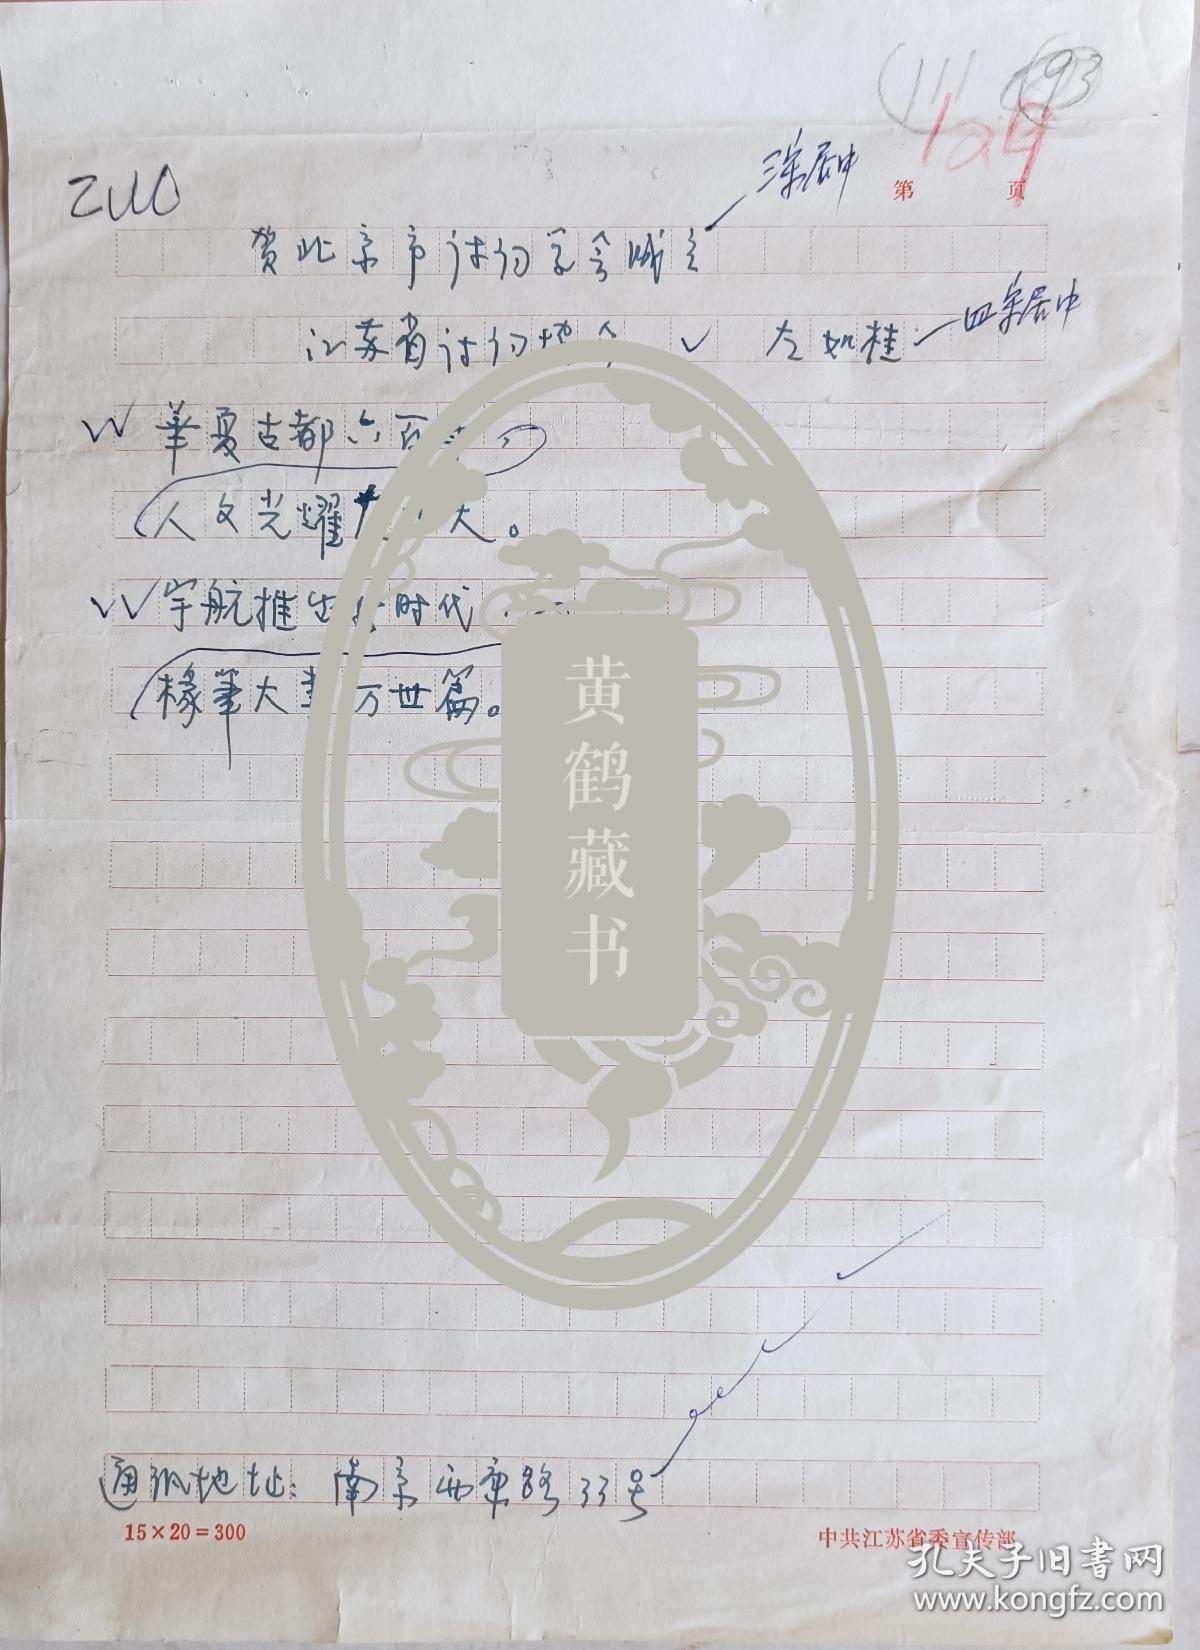 111 93
129
三宋居中
第 页
ZUO
贺北京市诗词学会成立
四宋居中
江苏省诗词协会 左如桂
華夏古都六百
人文光耀
宇航推出新时代
椽筆大書万世篇。
黄鹤藏书
通讯地址：南京西康路33号
15×20=300
中共江苏省委宣传部
孔夫子旧書网
www.kongfz.com